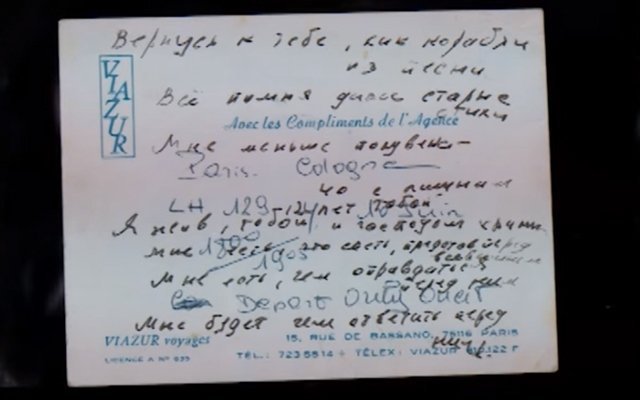 Вернусь к тебе, как корабли
из песни
VIAZUR
Всё помня даже старые
стихи
Avec les Compliments de l'Agence
Мне меньше полувека –
Paris. Cologne
40 с лишним
LH 129 лет тобой 10 Juin
Я жив, тобой и господом храним
Мне есть, что спеть, представ перед
всевышним
1905
Мне есть, чем оправдаться
перед ним
Depart Orly Ouest
Мне будет чем ответить перед
ним.
VIAZUR voyages 15, RUE DE BASSANO, 75116 PARIS
LICENCE A N° 635 TÉL.: 723 5514 + TÉLEX: VIAZUR 122 F